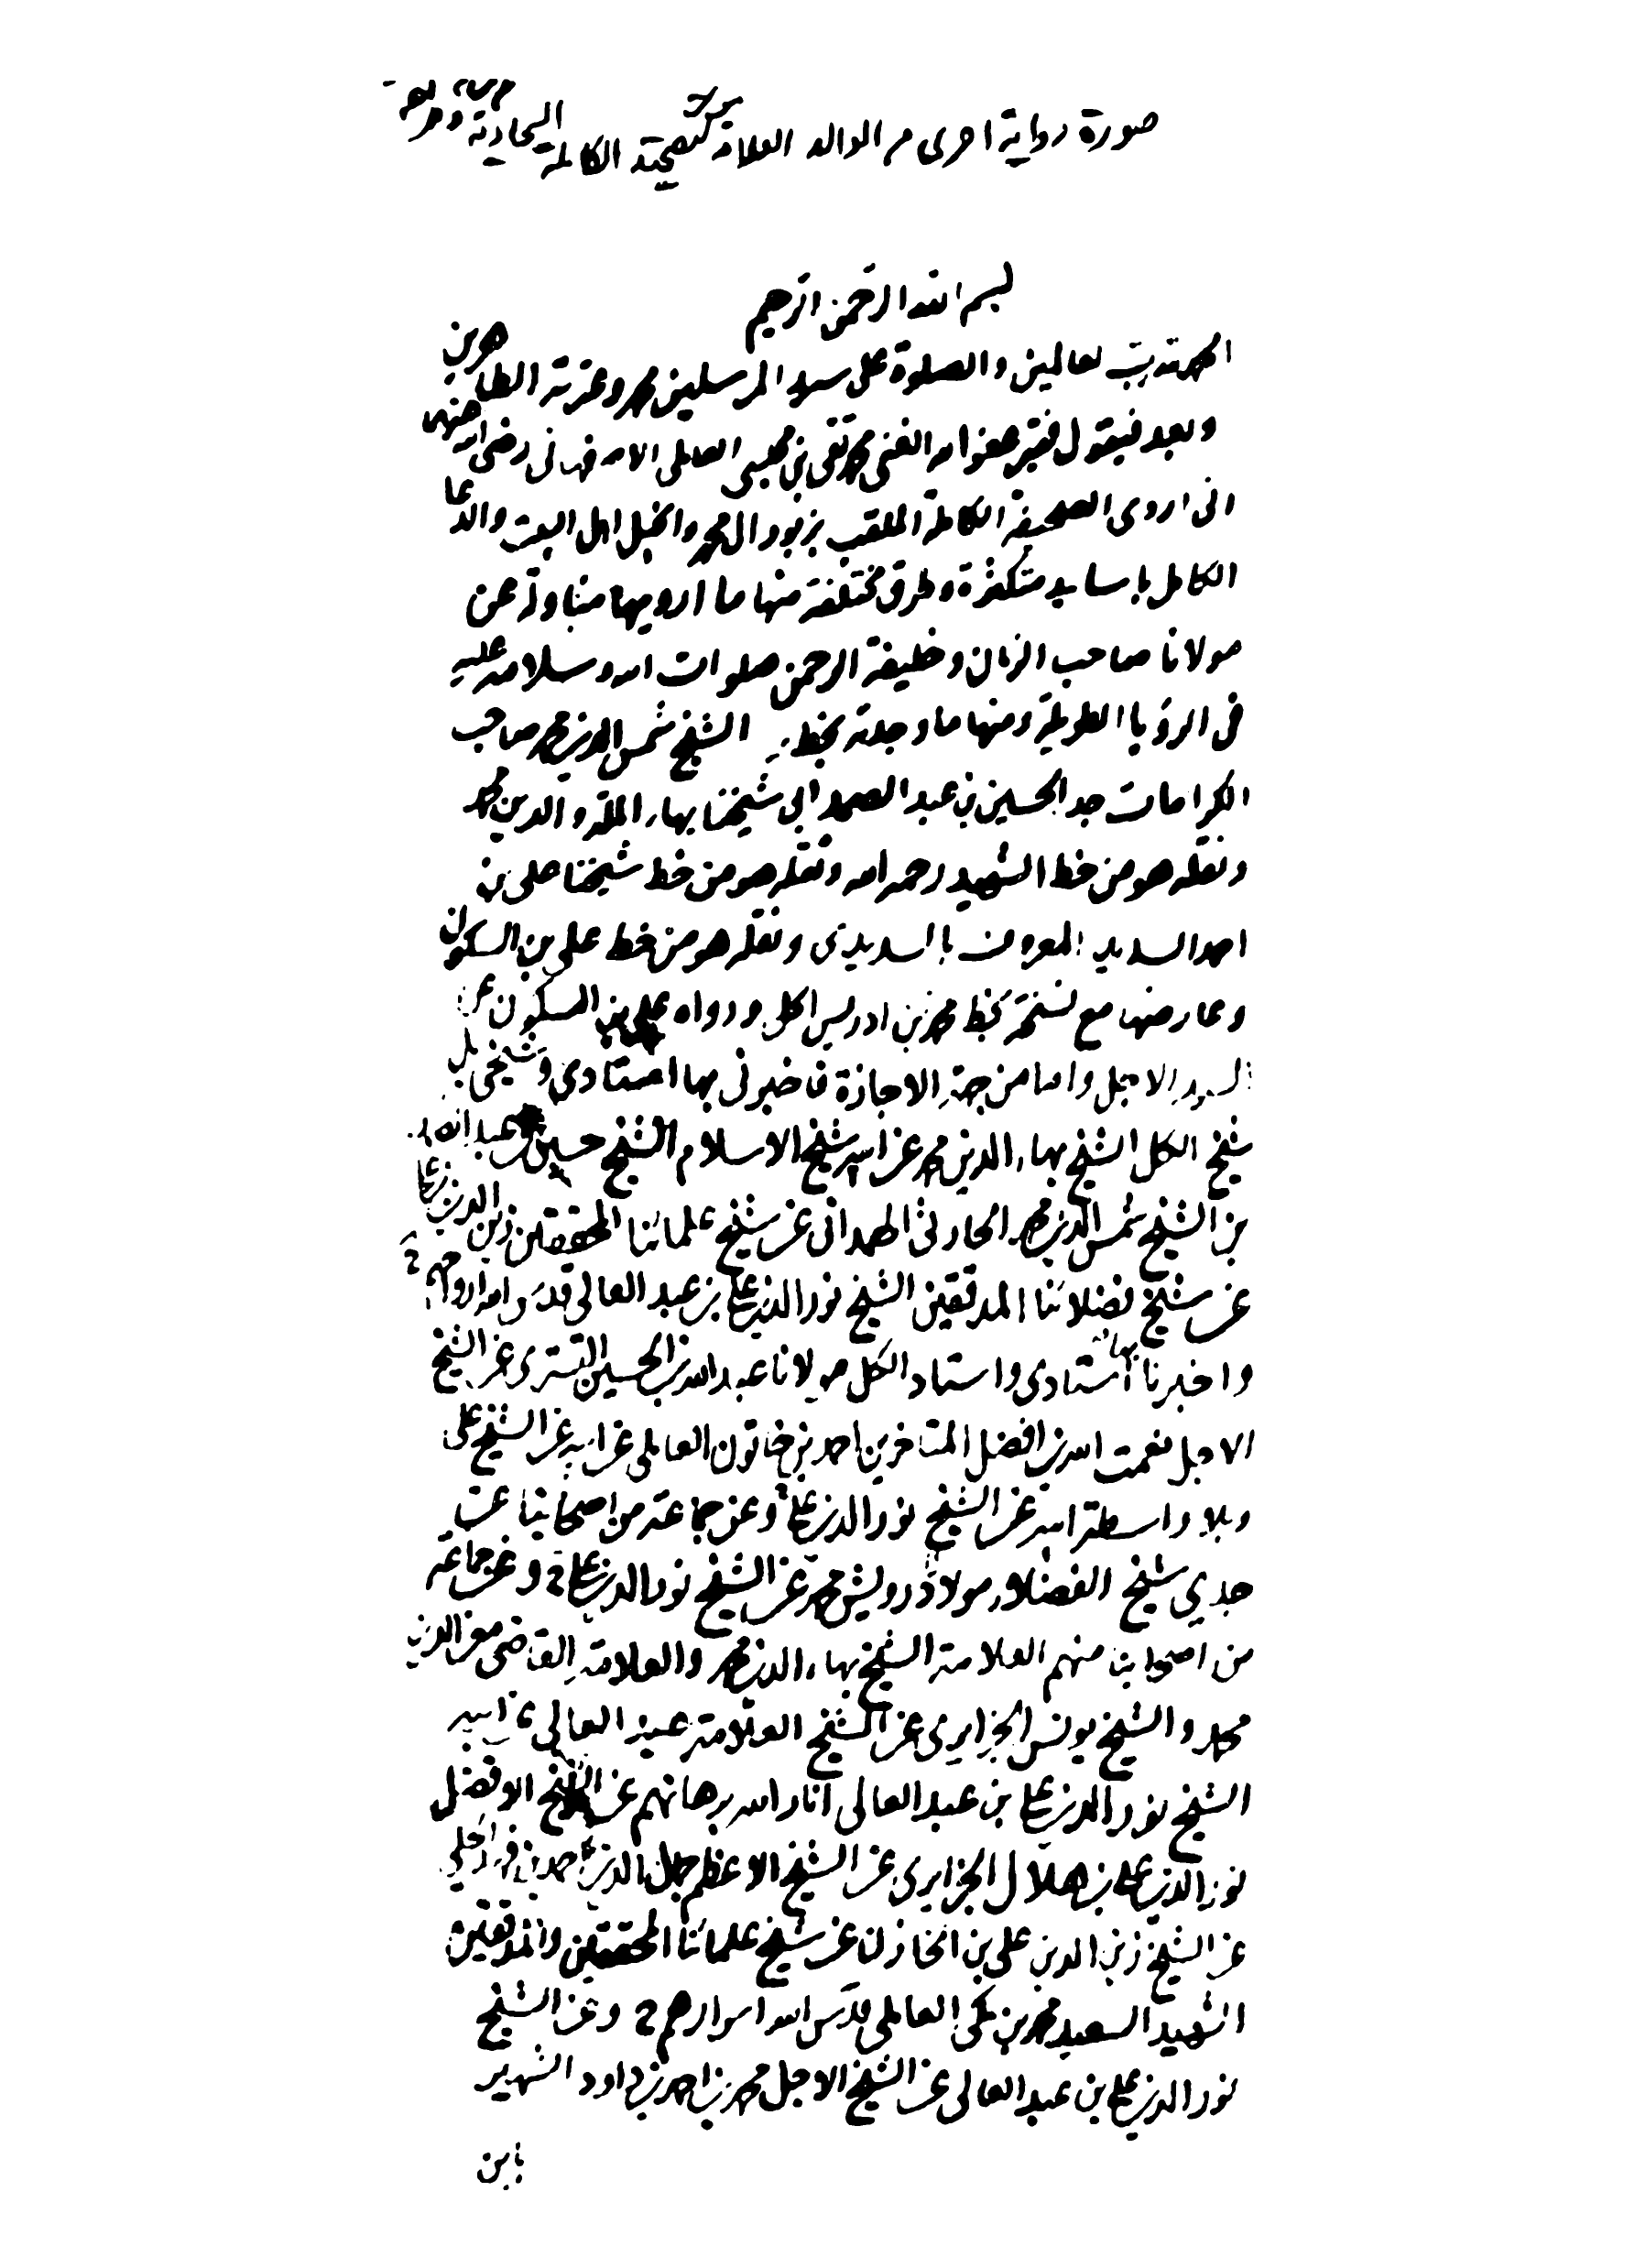 صورة رواية اخرى من الوالد العلامة للصحيفة الكاملة السجادية
بسم الله الرحمن الرحيم
الحمد لله رب العالمين والصلوة على سيد المرسلين محمد وعترته الطاهرين
وبعد فيقول فقير عفو الله الغني محمد تقي بن مجلسي العاملي الاصفهاني رضي الله عنهما
اني اروي الصحيفة الكاملة الملقب بزبور ال محمد وانجيل اهل البيت والدعاء
الكامل باسانيد متكثرة وطرق مختلفة منها ما ارويها مناولة عن
مولانا صاحب الزمان وخليفة الرحمن صلوات الله وسلامه عليه
في الرؤيا الطويلة ومنها ما وجدته بخط الشيخ شمس الدين محمد صاحب
الكرامات جد الحسين بن عبد الصمد ابي شيخنا بهاء الملة والدين محمد
ونقله هو من خط الشهيد رحمه الله ونقله هو من خط شيخنا علي بن
احمد السديد المعروف بالسديدي ونقله هو من خط علي بن السكون
وعارضها مع نسخة بخط محمد بن ادريس الحلي ورواه علي بن السكون عن
السيد الاجل واما من جهة الاجازة فاخبرني بها استادي وشيخي بل
شيخ الكل الشيخ بهاء الدين محمد عن ابيه شيخ الاسلام الشيخ حسين بن عبد الصمد
بن الشيخ شمس الدين محمد الحارثي الهمداني عن شيخ علمائنا المحققين زين الدين علي
عن شيخ فضلائنا المدققين الشيخ نور الدين علي بن عبد العالي قدس الله ارواحهم ح
واخبرنا بها استادي واستاد الكل مولانا عبد الله بن الحسين التستري عن الشيخ
الاجل نعمت الله بن افضل المتاخرين احمد بن خاتون العاملي عن ابيه عن الشيخ علي
وبلا واسطة ابيه عن الشيخ نور الدين علي ح وعن جماعة من اصحابنا عن
جدي شيخ الفضلاء مولانا درويش محمد عن الشيخ نور الدين علي ح وعن جماعة
من اصحابنا منهم العلامة الشيخ بهاء الدين محمد والعلامة القاضي معز الدين
محمد والشيخ يونس الجزايري عن الشيخ العلامة عبد العالي عن ابيه
الشيخ نور الدين علي بن عبد العالي انار الله برهانهم عن الشيخ الافضل
نور الدين علي بن هلال الجزايري عن الشيخ الاعظم جمال الدين احمد بن فهد الحلي
عن الشيخ زين الدين علي بن الخازن عن شيخ علمائنا المحققين والمدققين
الشهيد السعيد محمد بن مكي العاملي قدس الله اسرارهم ح وعن الشيخ
نور الدين علي بن عبد العالي عن الشيخ الاجل محمد بن احمد بن داود الشهير
بابن